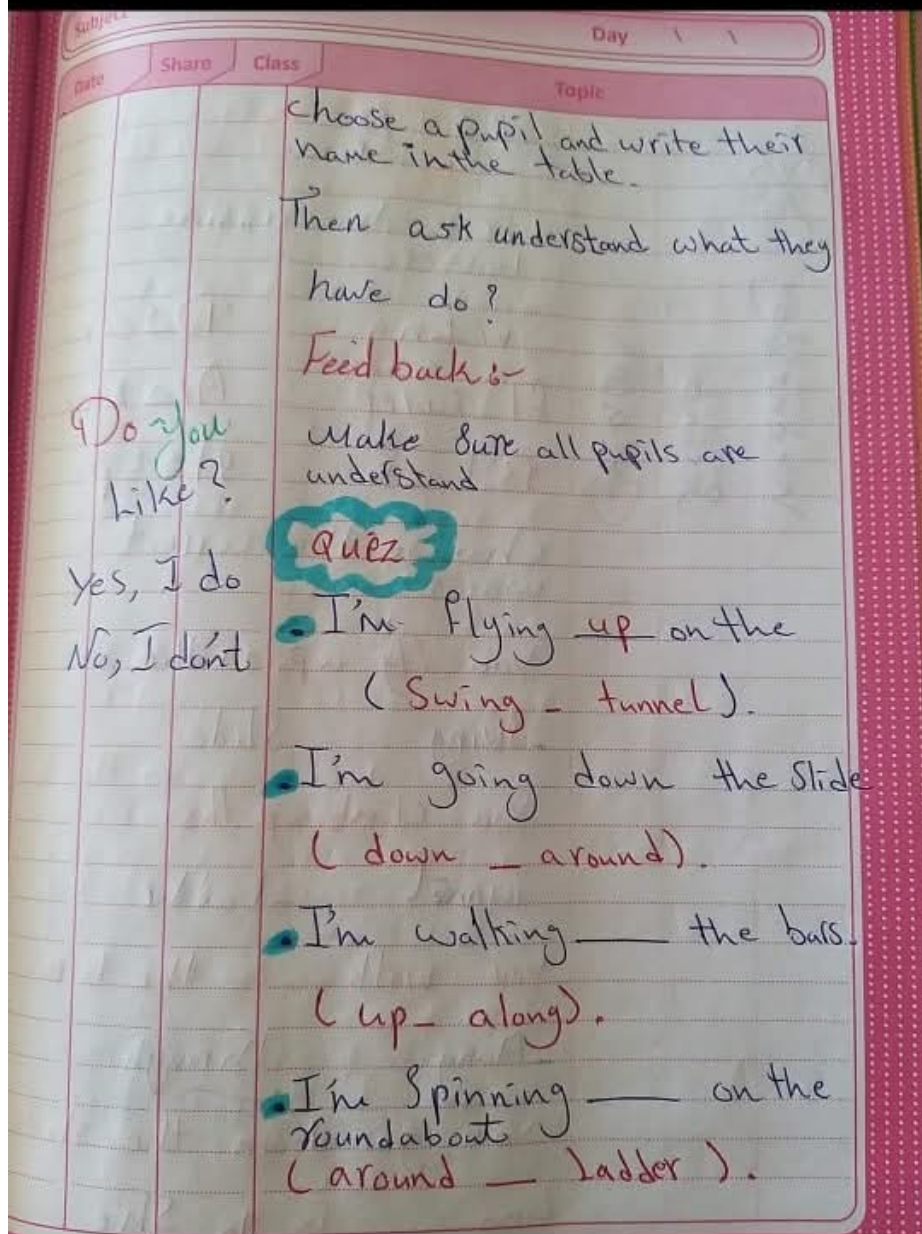 Subject
Day \ \
Date Share Class Topic
Choose a pupil and write their
name in the table.
Then ask understand what they
have do?
Feed back :-
Make Sure all pupils are
understand
Do You
Like?
Yes, I do
No, I don't
Quez
I'm flying up on the
(Swing - tunnel).
I'm going down the Slide
(down - around).
I'm walking ___ the bars.
(up - along).
I'm Spinning ___ on the
roundabout
(around - ladder).